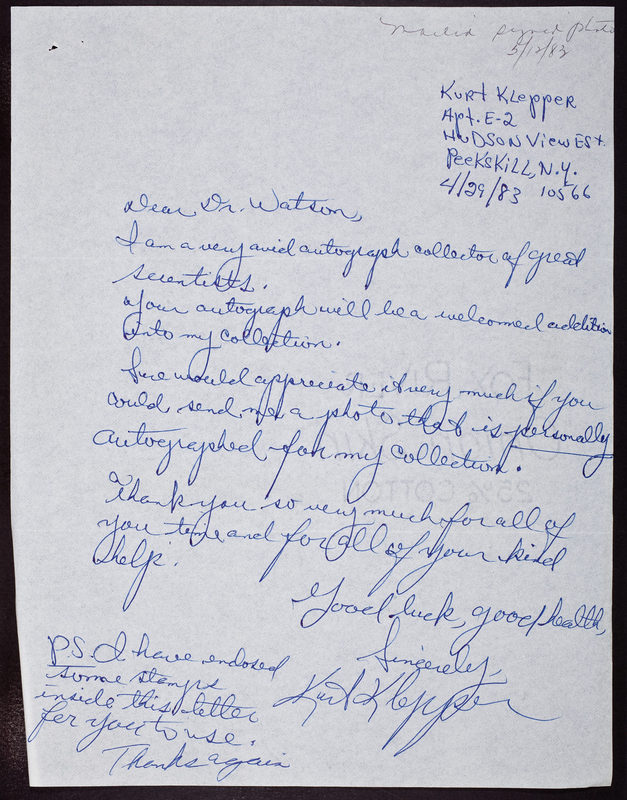 Mailed signed photo
5/12/83
Kurt Klepper
Apt. E-2
Hudson View Est.
Peekskill, N.Y.
4/29/83 10566
Dear Dr. Watson,
I am a very avid autograph collector of great
scientists.
Your autograph will be a welcomed addition
into my collection.
I sure would appreciate it very much if you
could send me a photo that is personally
autographed for my collection.
Thank you so very much for all of
you time and for all of your kind
help.
Good luck, good health,
Sincerely,
Kurt Klepper
P.S. I have enclosed
some stamps
inside this letter
for you to use.
Thanks again
25% COTTON